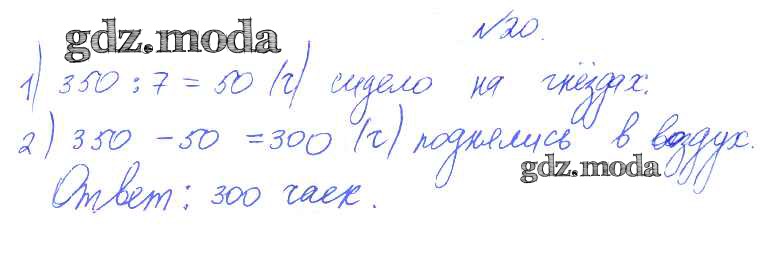 №20.
gdz.moda
1) 350 : 7 = 50 (г) сидело на гнёздах.
2) 350 - 50 = 300 (г) поднялись в воздух.
gdz.moda
Ответ: 300 чаек.